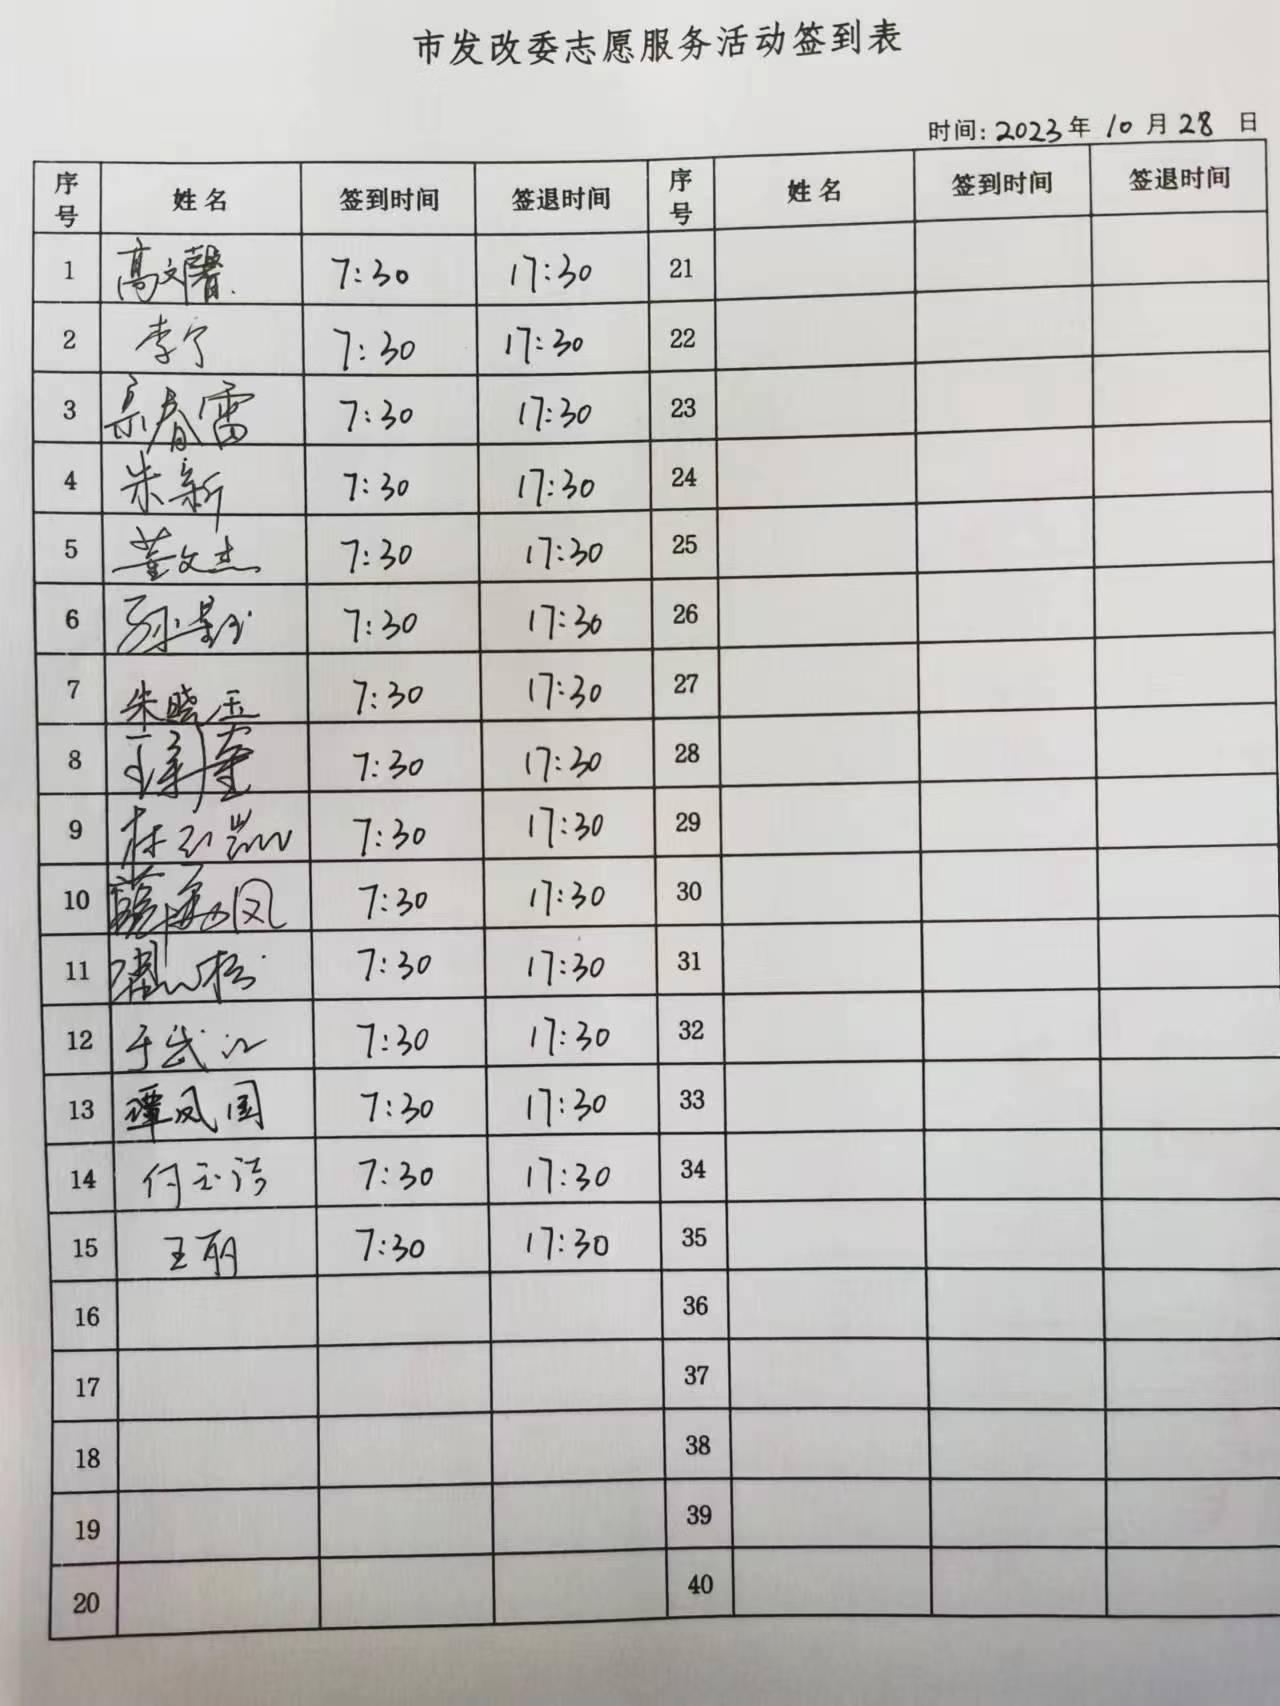 市发改委志愿服务活动签到表
时间: 2023年 10 月 28 日
序号 姓名 签到时间 签退时间 序号 姓名 签到时间 签退时间
1 高文馨 7:30 17:30 21
2 李宁 7:30 17:30 22
3 春雷 7:30 17:30 23
4 朱新 7:30 17:30 24
5 董文杰 7:30 17:30 25
6 孙 7:30 17:30 26
7 朱晓玉 7:30 17:30 27
8 7:30 17:30 28
9 林 凯 7:30 17:30 29
10 凤 7:30 17:30 30
11 松 7:30 17:30 31
12 于武江 7:30 17:30 32
13 谭凤国 7:30 17:30 33
14 付玉洁 7:30 17:30 34
15 王丽 7:30 17:30 35
16 36
17 37
18 38
19 39
20 40